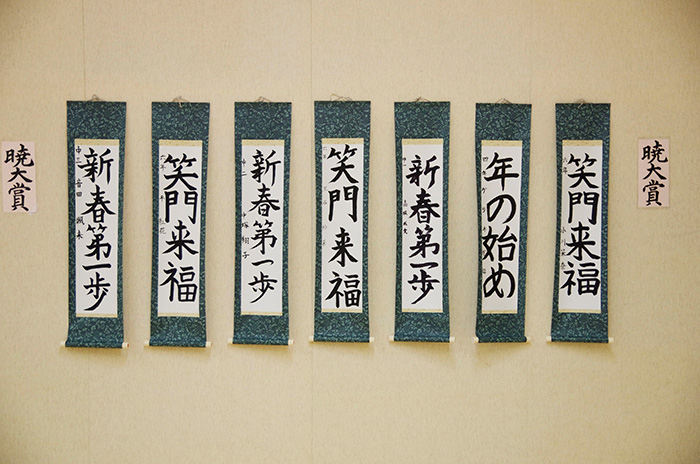 暁大賞
笑門来福
六年
年の始め
新春第一歩
笑門来福
新春第一歩
中二
笑門来福
六年
新春第一歩
中三
暁大賞